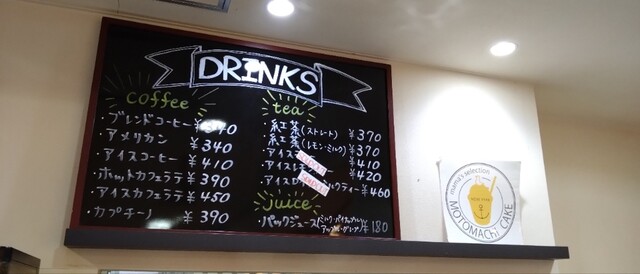 DRINKS
coffee
・ブレンドコーヒー ¥340
・アメリカン ¥340
・アイスコーヒー ¥410
・ホットカフェラテ ¥390
・アイスカフェラテ ¥450
・カプチーノ ¥390
tea
・紅茶(ストレート) ¥370
・紅茶(レモン・ミルク) ¥370
・アイステ ¥410
・アイスレモ ¥420
・アイスロイ ルクティー ¥460
juice
・パックジュース(ミルク・パイナップル アップル・グレープ) ¥180
mama's selection
MOTOMACHI CAKE